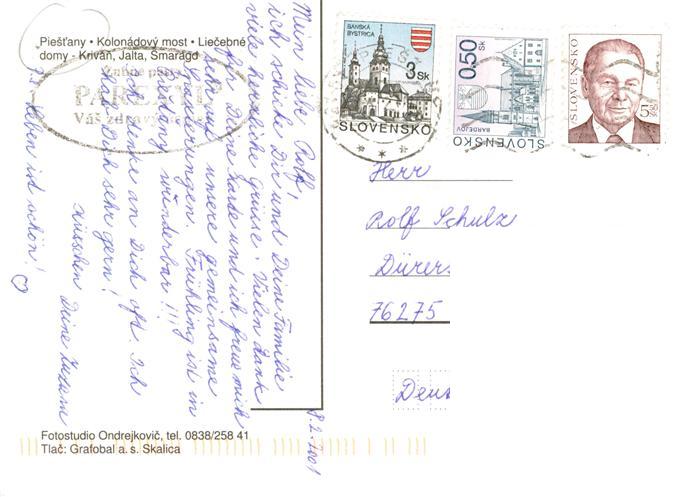 Piešťany • Kolonádový most • Liečebné
domy - Kriváň, Jalta, Smaragd
BANSKÁ
BYSTRICA
3 Sk
SLOVENSKO
0,50 Sk
BARDEJOV
SLOVENSKO
SLOVENSKO
5 Sk
8.2.2001
Mein Lieber Rolf,
ich schike Dir und Deine Familie
viele herzliche Grüsse. Vielen dank
für Deine Karte und ich freue mich
sehr auf unsere gemeinsame
Wanderungen. Frühling ist in
Piešťany wunderbar!!!
Ich denke an Dich oft. Ich
hab Dich sehr gern!
Küsschen Deine
Leben ist schön! ♡
Herr
Rolf Schulz
Dürers
76275
Deus
Váš zdravý
Fotostudio Ondrejkovič, tel. 0838/258 41
Tlač: Grafobal a. s. Skalica